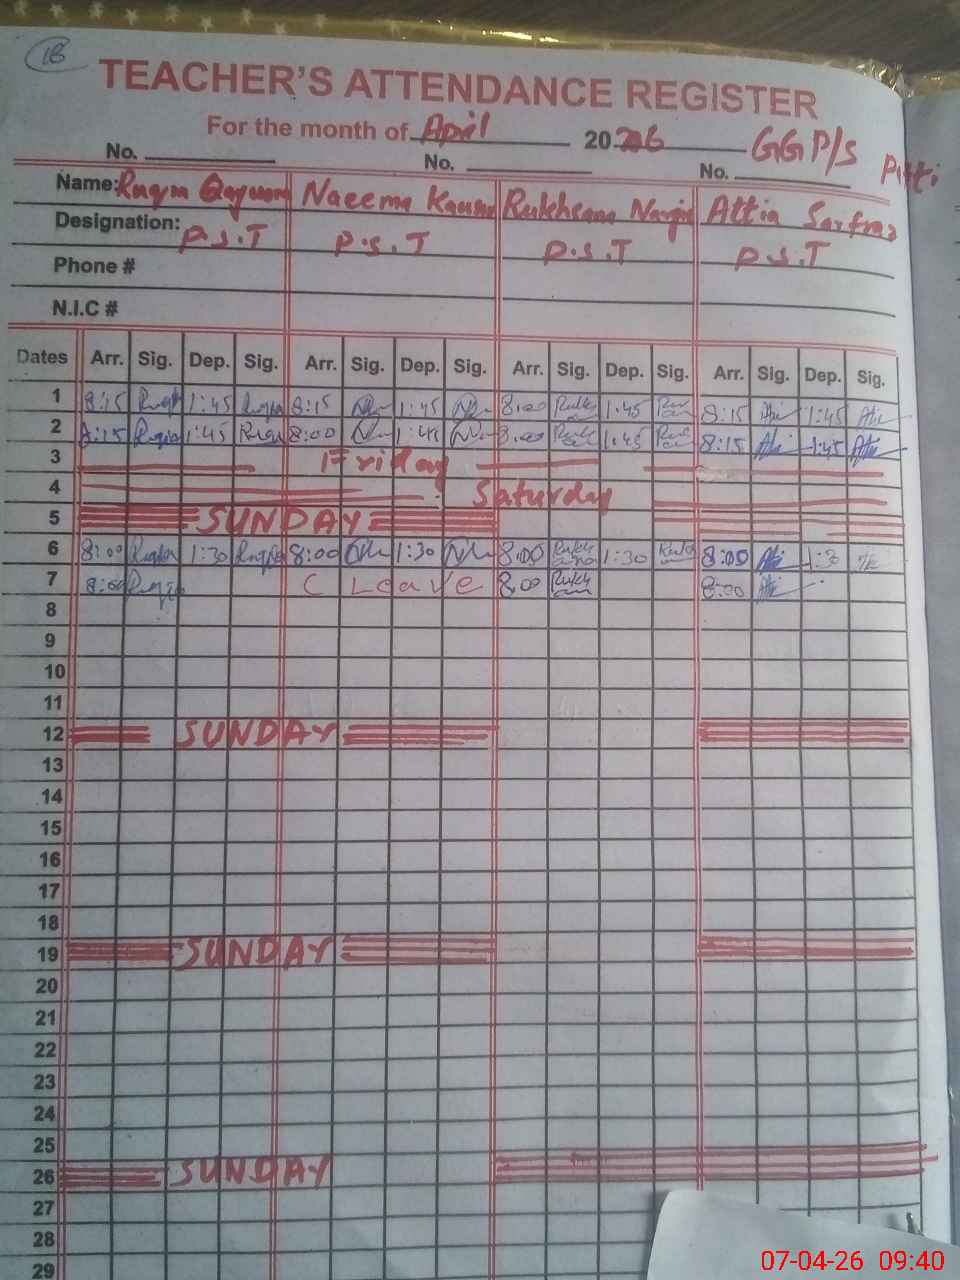 18
TEACHER'S ATTENDANCE REGISTER
For the month of April 2026 GGP/S Pitti
No. No. No.
Name: Naeema Kausar Rukhsana Nargis Attia Sarfraz
Designation: P.S.T P.S.T P.S.T P.S.T
Phone #
N.I.C #
Dates Arr. Sig. Dep. Sig. Arr. Sig. Dep. Sig. Arr. Sig. Dep. Sig. Arr. Sig. Dep. Sig.
1 8:15 1:45 8:15 1:45 8:00 1:45 8:15 1:45
2 8:15 1:45 8:00 1:45 8:00 1:45 8:15 1:45
3 Friday
4 Saturday
5 SUNDAY
6 8:00 1:30 8:00 1:30 8:00 1:30 8:00 1:30
7 8:00 C Leave 8:00 8:00
8
9
10
11
12 SUNDAY
13
14
15
16
17
18
19 SUNDAY
20
21
22
23
24
25
26 SUNDAY
27
28
29
07-04-26 09:40